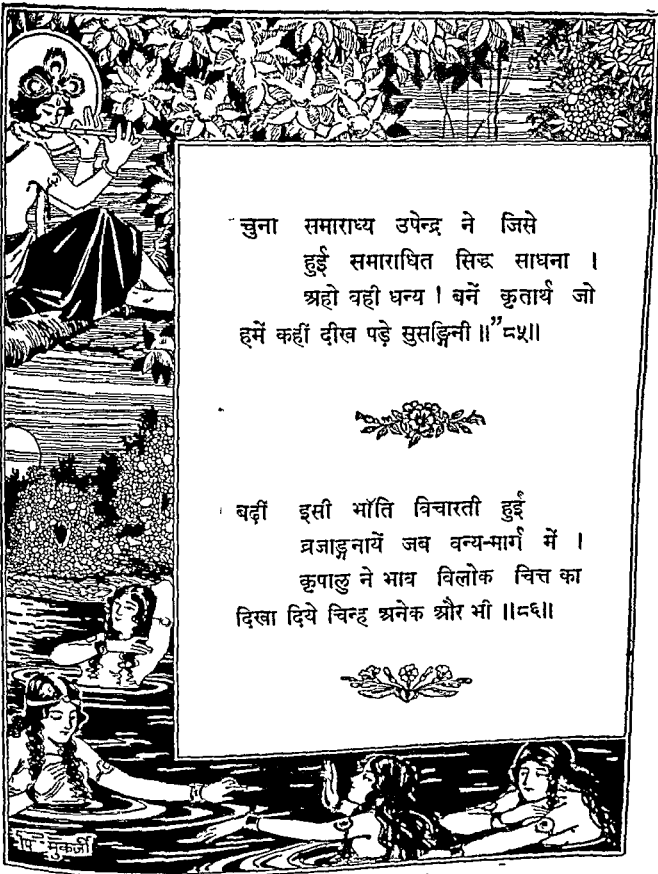 चुना समाराध्य उपेन्द्र ने जिसे
हुई समाराधित सिद्ध साधना ।
अहो वही धन्य ! बनें कृतार्थ जो
हमें कहीं दीख पड़े सुसङ्गिनी ॥”८५॥
बढ़ीं इसी भाँति विचारती हुई
व्रजाङ्गनायें जब वन्य-मार्ग में ।
कृपालु ने भाव विलोक चित्त का
दिखा दिये चिन्ह अनेक और भी ॥८६॥
मुकर्जी